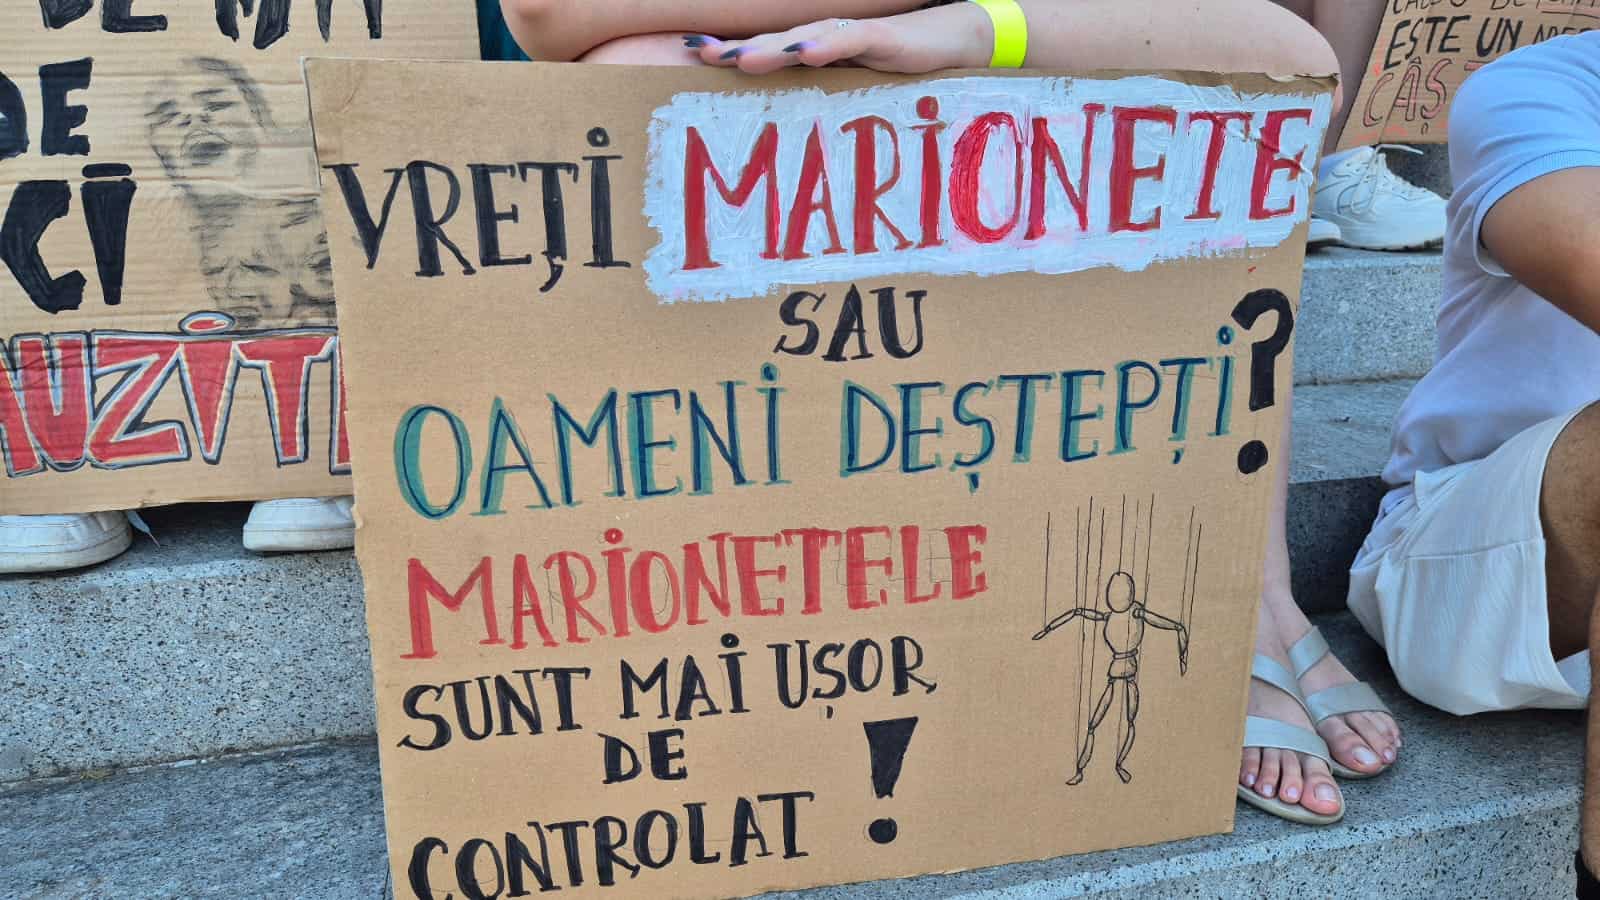 DE
CI
AUZITI
VREȚI MARIONETE
SAU
OAMENI DEȘTEPȚI?
MARIONETELE
SUNT MAI UȘOR
DE
CONTROLAT!
ESTE UN
CÂȘ